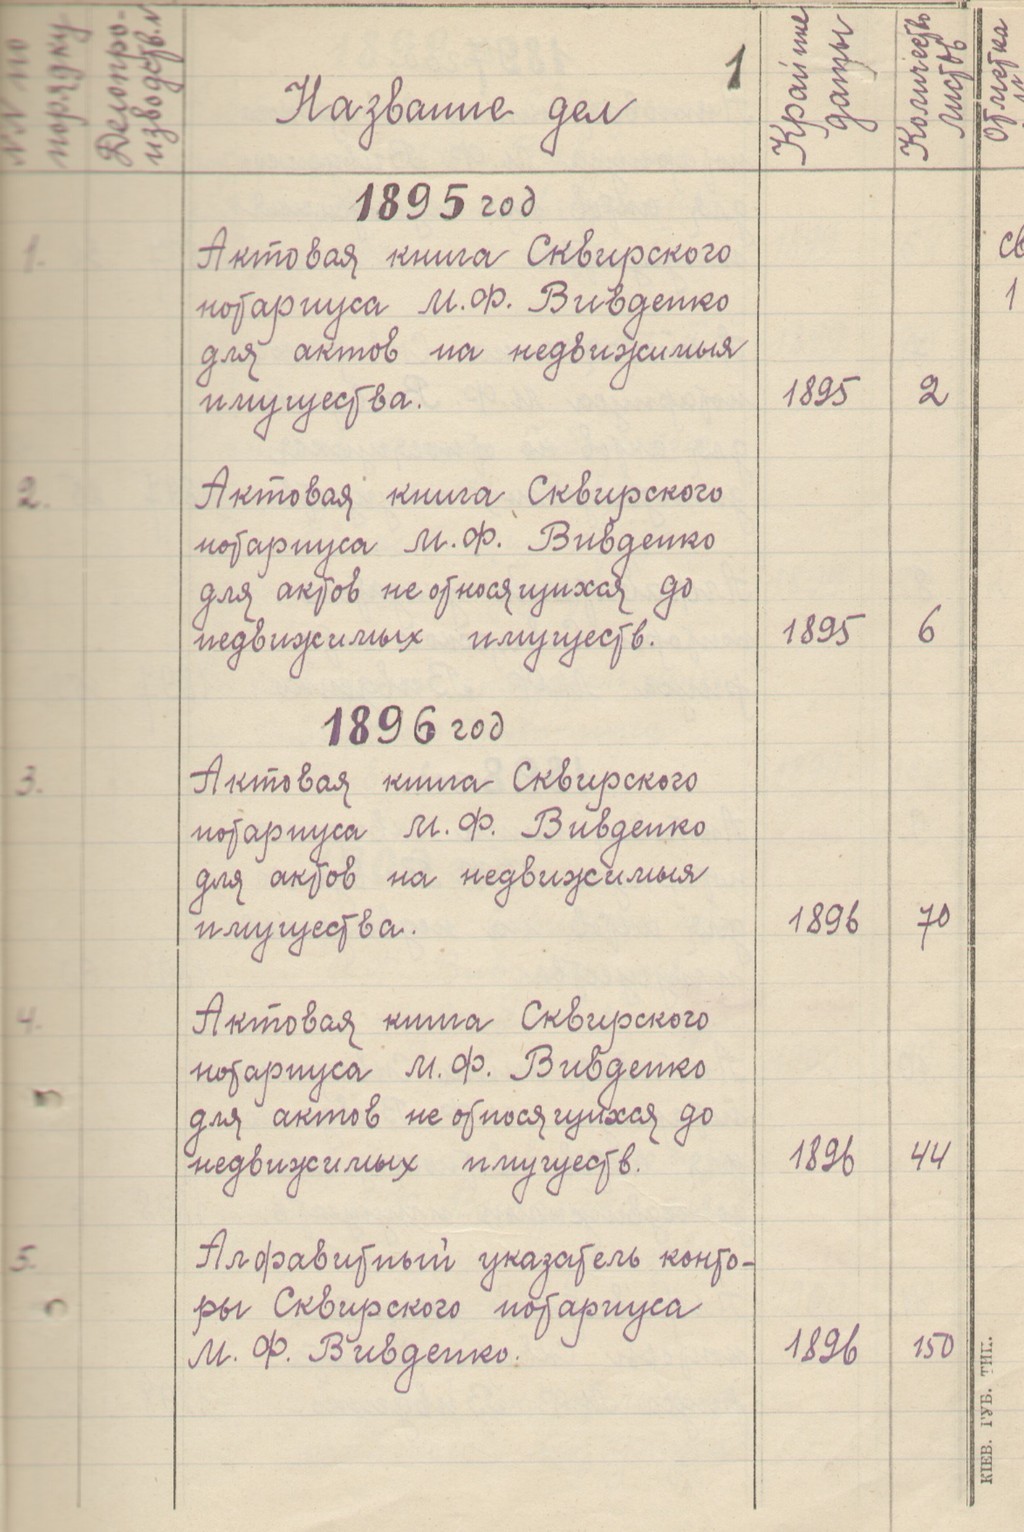 №№ по порядку
Делопро-
изводств. №
Название дел
1
Крайние даты
Количество листов
Отметка
1895 год
1.
Актовая книга Сквирского
нотариуса М.Ф. Вивденко
для актов на недвижимыя
имущества. 1895 2
св
1
2.
Актовая книга Сквирского
нотариуса М.Ф. Вивденко
для актов не относящихся до
недвижимых имуществ. 1895 6
1896 год
3.
Актовая книга Сквирского
нотариуса М.Ф. Вивденко
для актов на недвижимыя
имущества. 1896 70
4.
Актовая книга Сквирского
нотариуса М.Ф. Вивденко
для актов не относящихся до
недвижимых имуществ. 1896 44
5.
Алфавитный указатель конто-
ры Сквирского нотариуса
М. Ф. Вивденко. 1896 150
КІЕВ. ГУБ. ТИП.